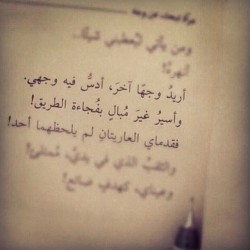 ومن يأتي ليُعطيني شيئًا..
أنهرهُ!
أريدُ وجهًا آخرَ، أدسُّ فيه وجهي.
وأسيرُ غيرَ مُبالٍ بفُجاءة الطريق!
فقدماي العاريتانِ لم يلحظهما أحد!
والثقبُ الذي في يدي، مُمتلئ!
وعيناي، كهدفٍ ضائع!